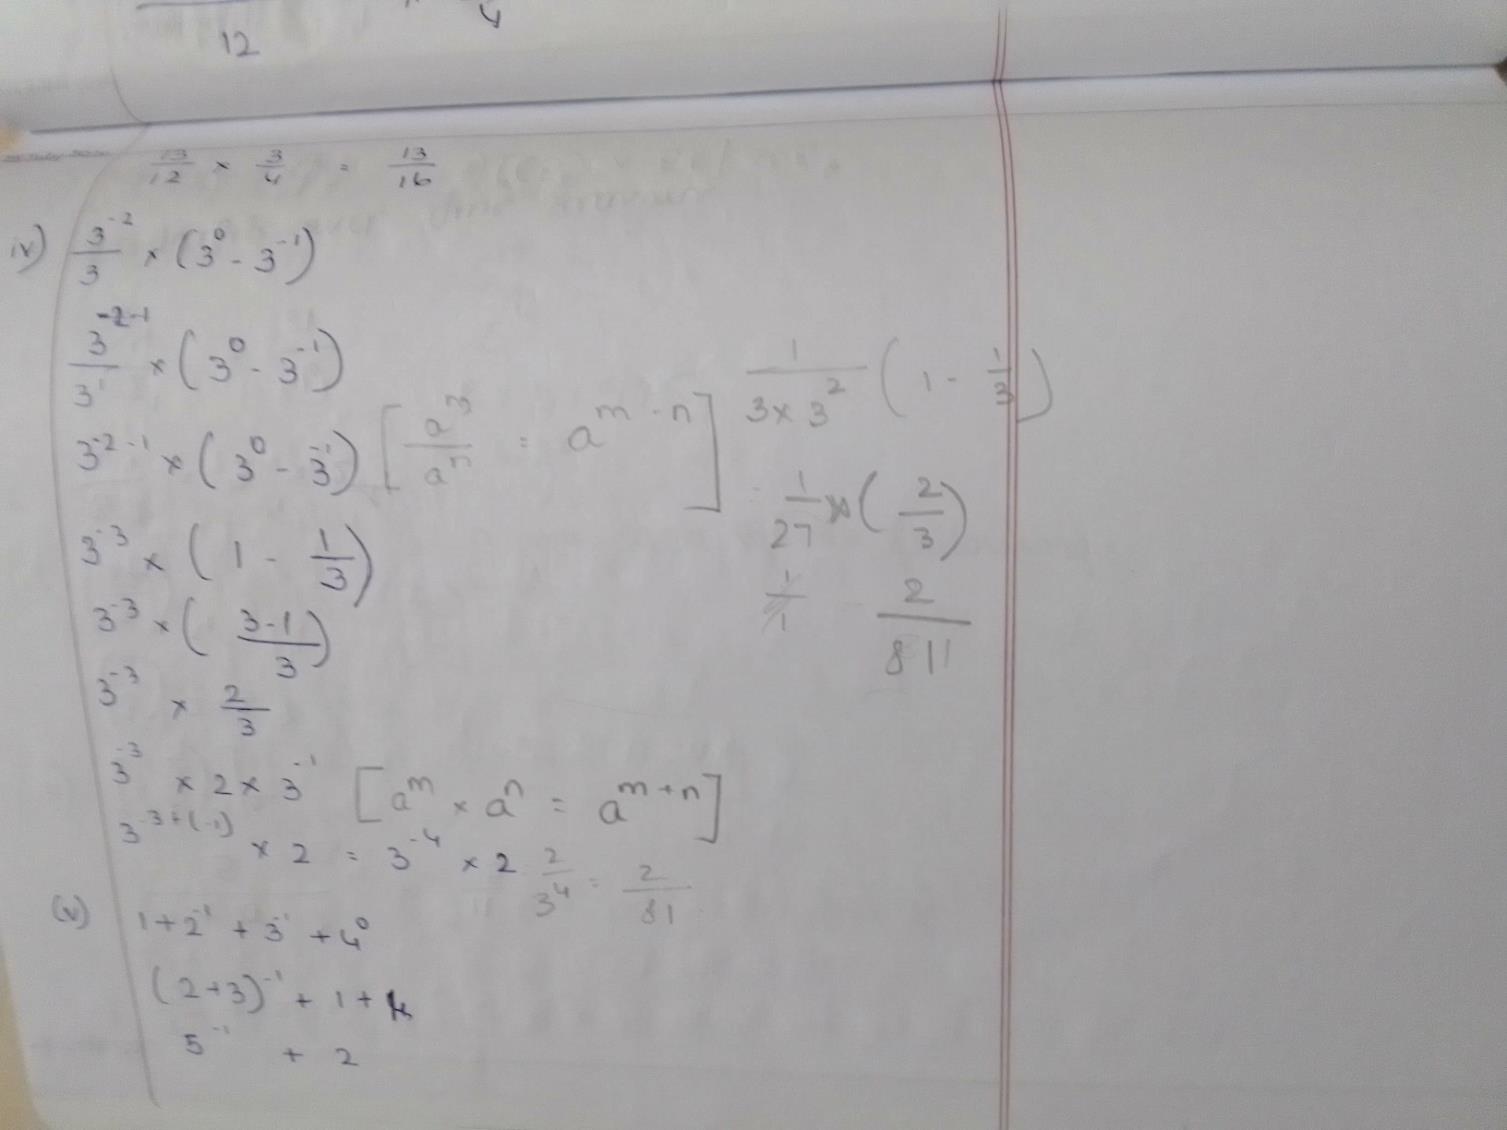 12
4
13/12 × 3/4 = 13/16
iv) 3⁻²/3 × (3⁰ - 3⁻¹)
3⁻²⁻¹/3¹ × (3⁰ - 3⁻¹)
3⁻²⁻¹ × (3⁰ - 3⁻¹) [aᵐ/aⁿ = aᵐ⁻ⁿ]
3⁻³ × (1 - 1/3)
3⁻³ × (3-1/3)
3⁻³ × 2/3
3⁻³ × 2 × 3⁻¹ [aᵐ × aⁿ = aᵐ⁺ⁿ]
3⁻³⁺⁽⁻¹⁾ × 2 = 3⁻⁴ × 2 2/3⁴ = 2/81
(v) 1 + 2⁻¹ + 3⁻¹ + 4⁰
(2+3)⁻¹ + 1 +
5⁻¹ + 2
1/3×3² (1 - 1/3)
1/27 × (2/3)
1/1 2/811